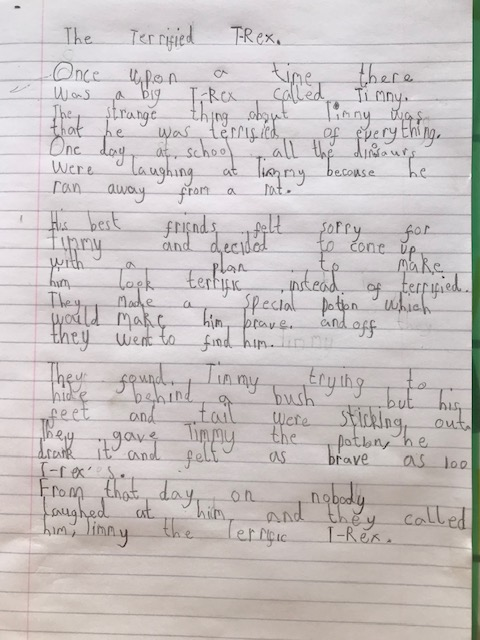 The Terrified T-Rex.
Once upon a time there
was a big T-Rex called Timmy.
The strange thing about Timmy was
that he was terrified of everything.
One day at school all the dinosaurs
were laughing at Timmy because he
ran away from a rat.
His best friends felt sorry for
Timmy and decided to come up
with a plan to make
him look terrific instead of terrified.
They made a special potion which
would make him brave. and off
they went to find him. Timmy
They found Timmy trying to
hide behind a bush but his
feet and tail were sticking out.
They gave Timmy the potion, he
drank it and felt as brave as 100
T-rex's.
From that day on nobody
laughed at him and they called
him, Timmy the Terrific T-Rex.